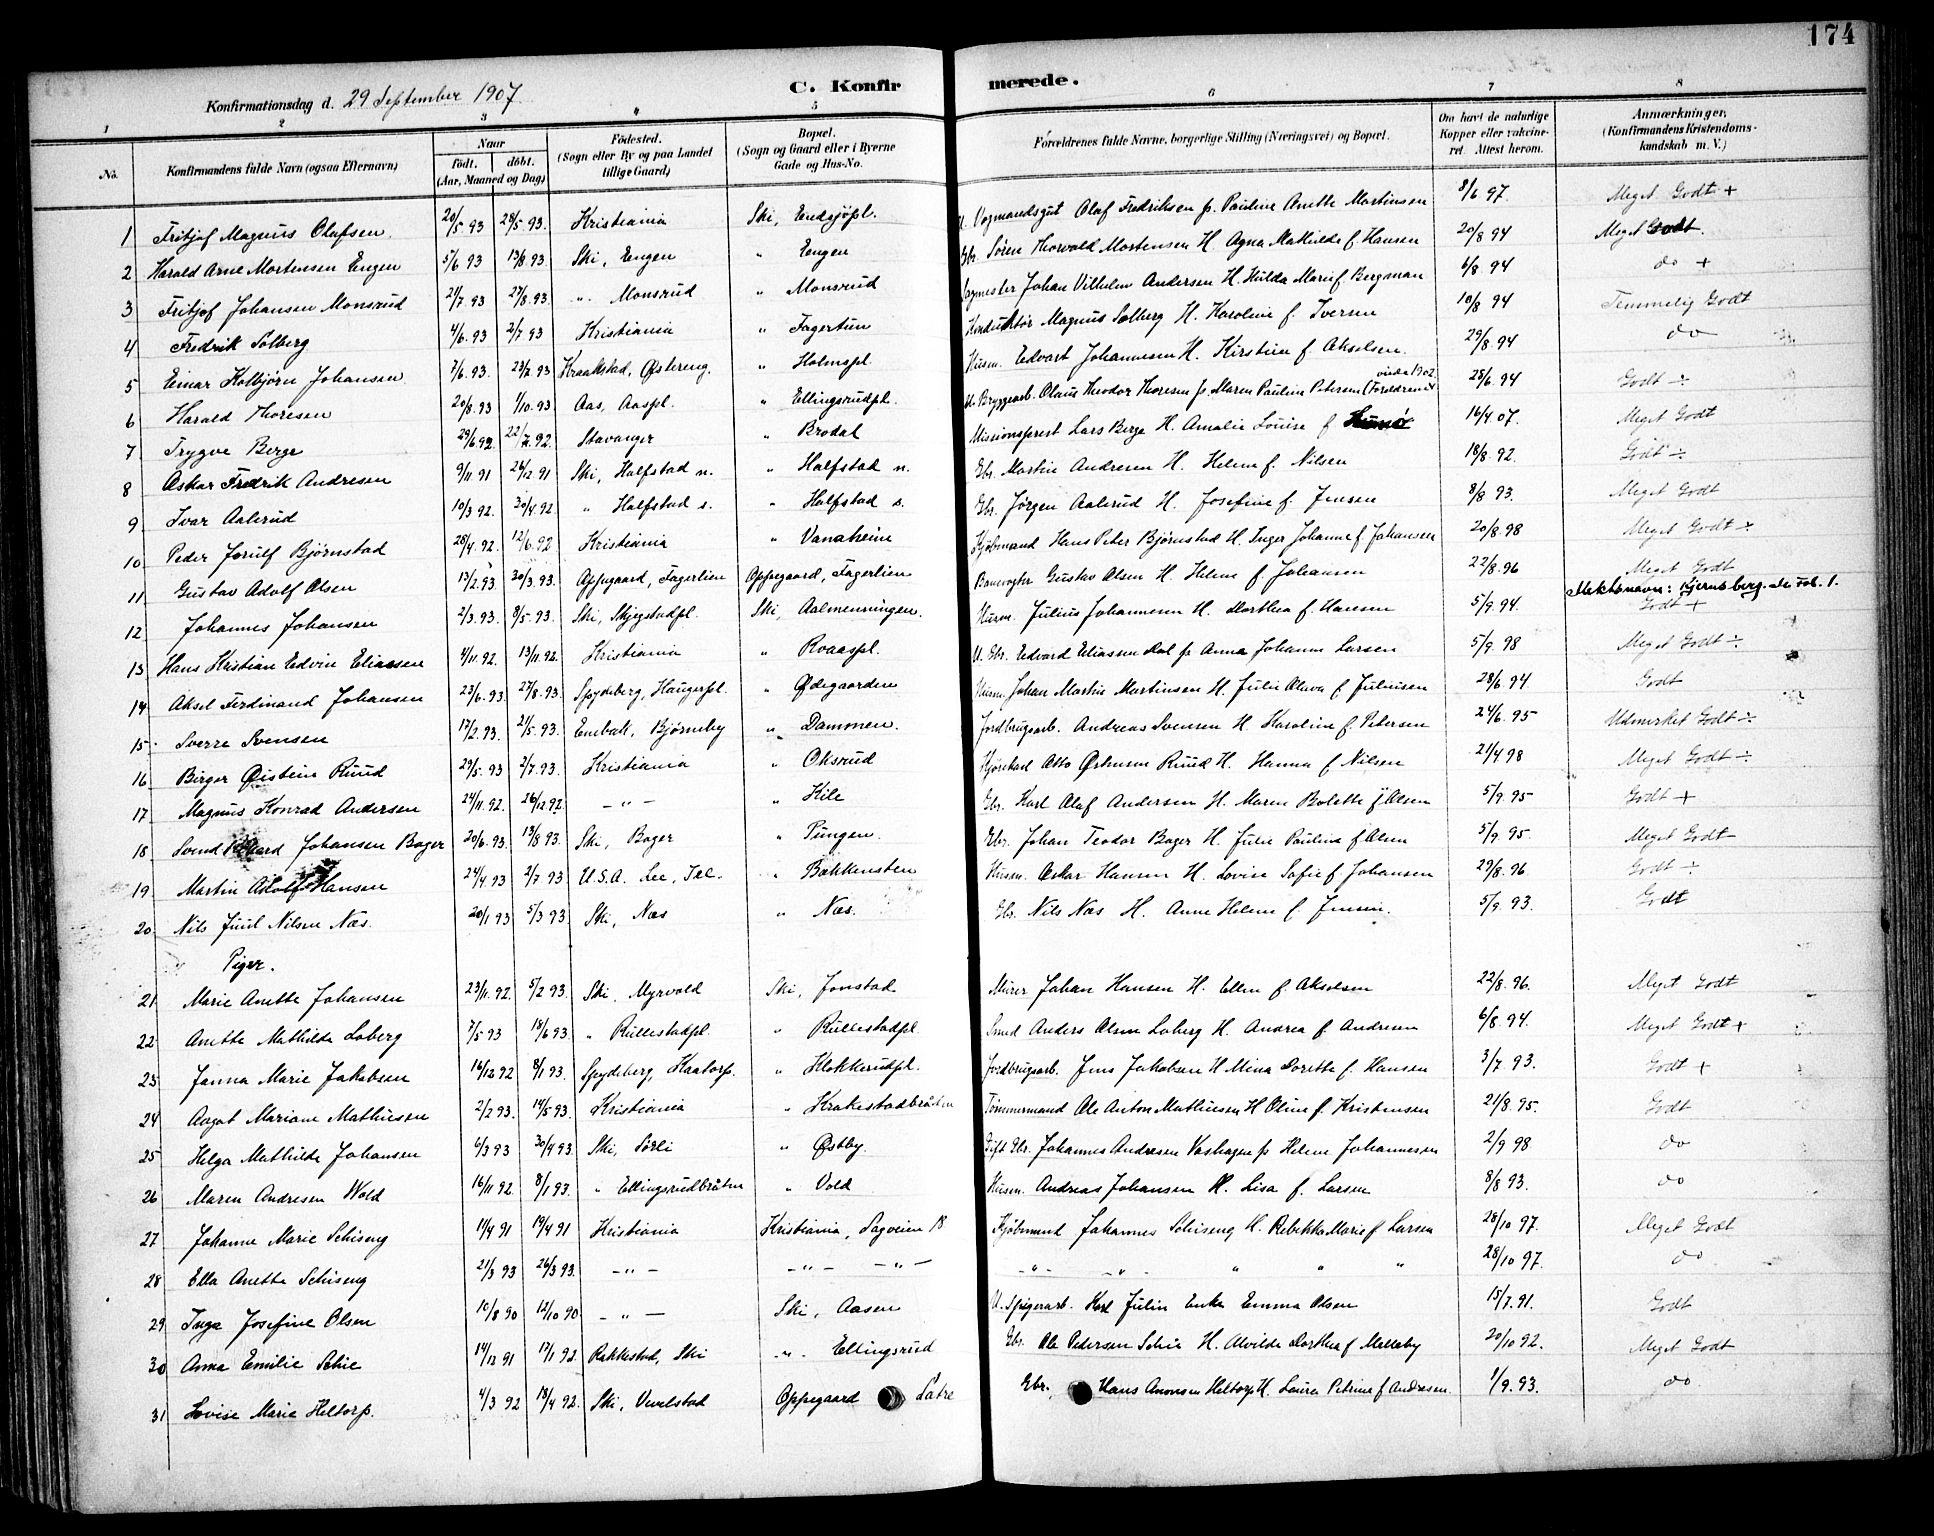 174
Konfirmationsdag d. 29 September 1907
C. Konfirmerede.
1 2 3 4 5 6 7 8
No. Konfirmandens fulde Navn (ogsaa Efternavn) Naar födt. döbt. (Aar, Maaned og Dag) Födested. (Sogn eller By og paa Landet tillige Gaard) Bopæl. (Sogn og Gaard eller i Byerne Gade og Hus-No. Forældrenes fulde Navne, borgerlige Stilling (Næringsvei) og Bopæl. Om havt de naturlige Kopper eller vakcineret. Attest herom. Anmærkninger, (Konfirmandens Kristendomskundskab m. V.)
1 Fritjof Magnus Olafsen 20/5 93 28/5 93. Kristiania Ski, Endsjöpl. U. Vognmandsgut Olaf Fredriksen p. Pauline Anette Martinsen 8/6 97. Meget Godt +
2 Harald Arne Mortensen Engen 5/6 93 13/8. 93. Ski, Engen " Engen Gbr. Sören Thorvald Mortensen H. Agna Mathilde f. Hansen 20/8 94 Meget Godt.
3 Fritjof Johansen Monsrud 21/7 93 27/8. 93. " Monsrud " Monsrud Sagmester Johan Vilhelm Andersen H. Hulda Marie f. Bergman 6/8 94 do +
4 Fredrik Solberg 4/6. 93 2/7 93 Kristiania " Fagertun Konduktör Magnus Solberg H. Karoline f. Iversen 10/8 94 Temmelig Godt
5 Einar Kolbjörn Johansen 7/6. 93. 23/2 93 Kraakstad, Østereng. " Holmspl. Husm. Edvart Johannesen H. Kirstine f. Akselsen. 29/8 94 do
6 Harald Thoresen 20/8. 93 1/10. 93 Aas, Aaspl. " Ellingsrudpl. U. Bryggearb. Olaus Theodor Thoresen p. Maren Pauline Petersen (Foreldrene viede 1902 25/6. 94 Godt ÷
7 Trygve Berge 29/6 92. 22/7. 92. Stavanger " Brodal Missionsprest Lars Berge H. Amalie Louise f 16/4 07. Meget Godt
8 Oskar Fredrik Andresen 9/11 91 26/12 91 Ski, Halfstad n. " Halfstad n. Gbr. Martin Andresen H. Helene f. Nilsen 18/8. 92. Godt ÷
9 Ivar Aalerud 10/3 92. 30/4. 92 " Halfstad s. " Halfstad s. Gbr. Jörgen Aalerud H. Josefine f. Jensen 8/8 93. Meget Godt
10 Peder Jorulf Björnstad 28/4. 92. 12/6. 92 Kristiania " Vanaheim Kjöbmand Hans Peter Björnstad H. Inger Johanne f Johansen 20/8. 98 Meget Godt ÷
11 Gustav Adolf Olsen 13/2. 93 30/3. 93. Oppegaard, Fagerlien Oppegaard, Fagerlien Banevogter Gustav Olsen H. Helene f. Johansen 22/8. 96 Meget Godt
12 Johannes Johansen 2/3. 93. 8/5. 93. Ski, Skjegstadpl. Ski, Aalmenningen. Husm. Julius Johannesen H. Dorthea f. Hansen 5/9. 94. Godt + Slektsnavn: Kjernsberg. se Fol. 1.
13 Hans Kristian Edvin Eliassen 4/11. 92. 13/11. 92. Kristiania " Roaaspl. U. Gbr. Edvard Eliassen Dal p Anna Johanne Larsen 5/9. 98 Meget Godt ÷
14 Aksel Ferdinand Johansen 23/6. 93. 27/8. 93. Spydeberg, Haugerpl. " Ødegaarden Husm. Johan Martin Martinsen H. Julie Olava f. Juliusen 28/6. 94. Godt
15 Sverre Svensen 17/2. 93. 21/5. 93. Enebak, Björneby " Dammen. Jordbrugsarb. Andreas Svensen H. Karoline f. Petersen 24/6. 95 Udmerket Godt ÷
16 Birger Øistein Ruud 29/5. 93 2/7. 93. Kristiania " Oksrud Kjörekarl Otto Østensen Ruud H. Hanna f Nilsen 21/4 98 Meget Godt ÷
17 Magnus Konrad Andersen 24/11. 92. 26/12 92. - " - " Kile Gbr. Karl Olaf Andersen H. Maren Bolette f Olsen 5/9. 95 Godt +
18 Svend Johansen Bager 20/6. 93. 13/8 93. Ski, Bager " Pungen. Gbr. Johan Teodor Bager H. Julie Pauline f Olsen 5/9. 95. Meget Godt
19 Martin Adolf Hansen 24/4. 93 2/7 93 U.S.A. Lee, Bakkensten Husm. Oskar Hansen H. Lovise Sofie f Johansen 29/8. 96 Godt ÷
20 Nils Juul Nilsen Næs. 20/1 93 5/3 93 Ski, Næs " Næs. Gbr. Nils Næs H. Anne Helene f. Jensen. 5/9. 93. Godt
Piger.
21 Marie Anette Johansen 23/11. 92. 5/2 93. Ski, Myrvold Ski, Jonstad Murer Johan Hansen H. Ellen f. Akselsen 22/8. 96. Meget Godt
22 Anette Mathilde Loberg 7/5 93 18/6 93. " Rullestadpl. " Rullestadpl. Smed Anders Olsen Loberg H. Andrea f. Andresen 6/8. 94. Meget Godt +
23 Janna Marie Jakobsen 16/12 92 8/1 93. Spydeberg, Kaatorp. " Klokkerudpl. Jordbrugsarb. Jens Jakobsen H Mina Dorette f. Hansen 3/7 93. Godt +
24 Aagot Mariane Mathiesen 2/2 93. 14/5 93. Kristiania " Krakestadbråten Tömmermand Ole Anton Mathiesen H Oline f. Kristensen 21/8. 95. Godt
25 Helga Mathilde Johansen 6/3 93 30/4 93. Ski, Sörli " Østby. Gift Gbr. Johannes Andresen Vashagen p Helene Johannesen 2/9 98 do
26 Maren Andresen Wold 16/11 92. 8/1 93. " Ellingsrudbråten " Vold Husm. Andreas Johansen H. Lisa f. Larsen 8/8 93. do
27 Johanne Marie Schiong 11/4 91 19/4 91 Kristiania Kristiania, Sagveien 18 Kjöbmand Johannes Schiong H. Rebekka Marie f Larsen 28/10 97. Meget Godt
28 Ella Anette Schiong 21/3 93 26/3 93. - " - - " - - " - - " - - " - " " " 28/10 97. do
29 Inga Josefine Olsen 10/8 90 12/10 90. - " - Ski, Aasen U. Spigerarb. Karl Julin Enke Emma Olsen 15/7. 91. Godt
30 Anna Emilie Schie 14/12 91 17/1 92. Rakkestad, Ski " Ellingsrud Gbr. Ole Pedersen Schie H. Alvilde Dorthea f Melleby 20/10 92. Meget Godt
31 Lovise Marie Heltorp. 4/3 92 18/4 92. Ski, Vevelstad Oppegaard Sætre Gbr. Hans Aronsen Heltorp H. Laura Petrine f Andresen. 1/9. 93. do.